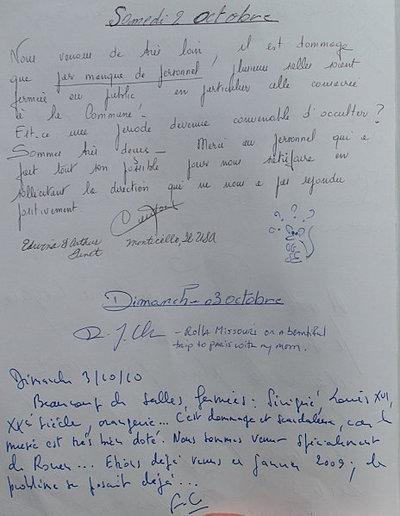 Samedi 2 octobre
Nous venons de très loin, il est dommage
que par manque de personnel, plusieurs salles soient
fermées au public en particulier celle consacrée
à la Commune!
Est-ce une période devenue convenable d'occulter?
Sommes très déçus_ Merci au personnel qui a
fait tout son possible pour nous satisfaire en
sollicitant la direction qui ne nous a pas répondu
positivement
Edwina & Arthur
Monticello, IL USA
? ? ?
Dimanche 03 octobre
- Rolla Missouri on a beautiful
trip to paris with my mom.
Dimanche 3/10/10
Beaucoup de salles fermées: Sévigné, Louis XVI,
XXè siècle, orangerie... C'est dommage et scandaleux, car le
musée est très bien doté. Nous sommes venus spécialement
de Rouen... Etions déjà venus en Janvier 2009; le
problème se posait déjà...